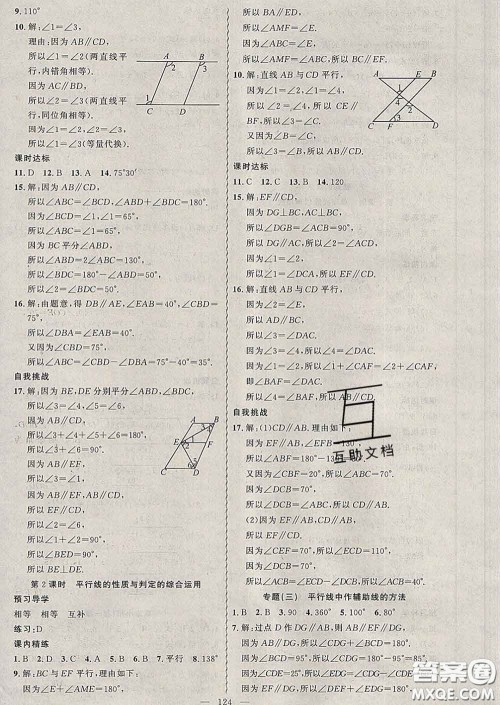 9. 110°
10. 解:∠1=∠3,
理由:因为 AB∥CD,
所以∠1=∠2(两直线平
行,内错角相等).
因为 AC∥BD,
所以∠2=∠3(两直线平
行,同位角相等).
所以∠1=∠3(等量代换).
课时达标
11. D 12. B 13. A 14. 75°30′
15. 解:因为 AB∥CD,
所以∠ABC=∠1, ∠ABD+∠BDC=180°.
所以∠ABC=∠1=65°,
所以∠ABC=∠1=65°.
因为 BC 平分∠ABD,
所以∠ABD=2∠ABC=130°.
所以∠BDC=180°-∠ABD=50°.
所以∠2=∠BDC=50°.
16. 解:由题意,得 DB∥AE,∠EAB=40°,∠CBD=
75°,
所以∠DBA=∠EAB=40°.
所以∠ABC=∠CBD-∠DBA=75°-40°=35°.
自我挑战
17. 解:因为 BE,DE 分别平分∠ABD,∠BDC,
所以∠3=∠4,∠5=∠6,
因为∠1=∠3,∠2=∠6,
所以∠1=∠4,∠2=∠5.
所以 AB∥EF,
因为 AB∥CD,
所以 EF∥CD.
所以∠BEF=∠3,
所以∠BED=∠3+∠6.
因为∠3+∠4+∠5+∠6=180°,
所以∠3+∠6=90°,
所以∠BED=90°.
第 2 课时 平行线的性质与判定的综合运用
预习导学
相等 相等 互补
练习:D
课内精练
1. B 2. D 3. D 4. B 5. B 6. 平行 7. B 8. 138°
9. 解:BC 与 EF 平行.理由如下:
因为∠E+∠AME=180°,
所以 BA∥ED,
所以∠B=∠BND.
因为∠B=∠E,
所以∠BND=∠E.
所以 BC∥EF.
10. 解:直线 AB 与 CD 平行,
因为∠1=∠2,∠1=∠4,
所以∠2=∠4.所以 CE∥
BF.所以∠C=∠BFD.
又因为∠B=∠C,
所以∠BFD=∠B,所以 AB∥CD.
课时达标
11. C 12. C 13. B 14. 120
15. 解:EF∥CD.理由如下:
因为 DG⊥BC,AC⊥BC,
所以∠DGB=∠ACB=90°.
所以 DG∥AC.
所以∠2=∠DCA.
因为∠1=∠2,
所以∠1=∠DCA,所以 EF∥CD.
16. 解:直线 AB 与 CD 平行.
因为∠3=∠4,
所以 AD∥BE.
所以∠3=∠DAC.
所以∠4=∠DAC.
因为∠1=∠2,所以∠1+∠CAF=∠2+∠CAF,
即∠BAF=∠DAC.
所以∠4=∠BAF,所以 AB∥CD.
自我挑战
17. 解:(1)CD∥AB.理由如下:
所以∠ABF=180°-13
又因为∠CBF=20°,所以∠ABC=70°.
因为∠DCB=70°,
所以∠DCB=∠ABC,所以 CD∥AB.
(2)因为 EF∥AB,CD∥AB,
所以 EF∥CD.
因为∠CEF=70°,所以∠ECD=110°.
因为∠DCB=70°,
专题(三) 平行线中作辅助线的方法
1. B 2. D 3. 90° 4. 360° 5. 100° 6. 80°
7. 解:过点 D 作 DG∥AB,所以 DG∥AB∥EF.
因为 AB∥DG,所以∠CDG+∠BCD=180°.
因为 DG∥EF,所以∠EDG+∠DEF=180°.
124
互助文档
答案圈
MXQE.COM